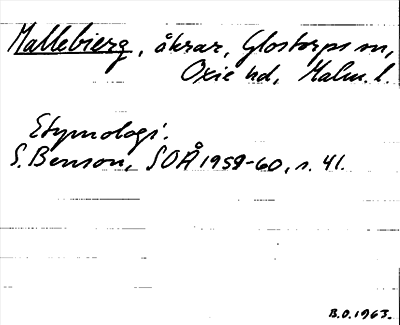 Mallebierg, åkrar, Glostorps sn,
Oxie hd, Malm. l.
Etymologi:
S. Benson, SOÅ 1959-60, s. 41.
B.O. 1963.